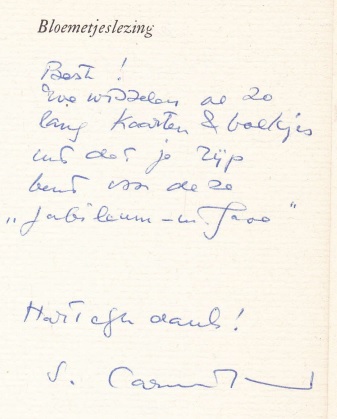 Bloemetjeslezing
Best !
we wisselen al zo
lang kaarten & boekjes
uit dat je rijp
bent voor deze
"Jubileum-uitgave"
Hartelijk dank!
S. Carmiggelt